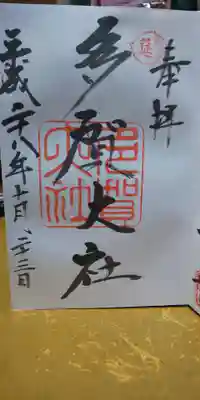 奉拝
多賀大社
多賀
大社
平成二十八年十月二十三日